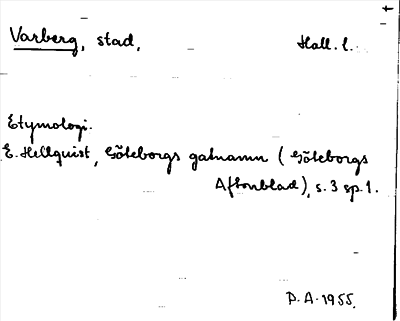 Varberg, stad, Hall. l.
Etymologi.
E. Hellquist, Göteborgs gatnamn (Göteborgs
Aftonblad), s. 3 sp. 1.
P. A. 1955.